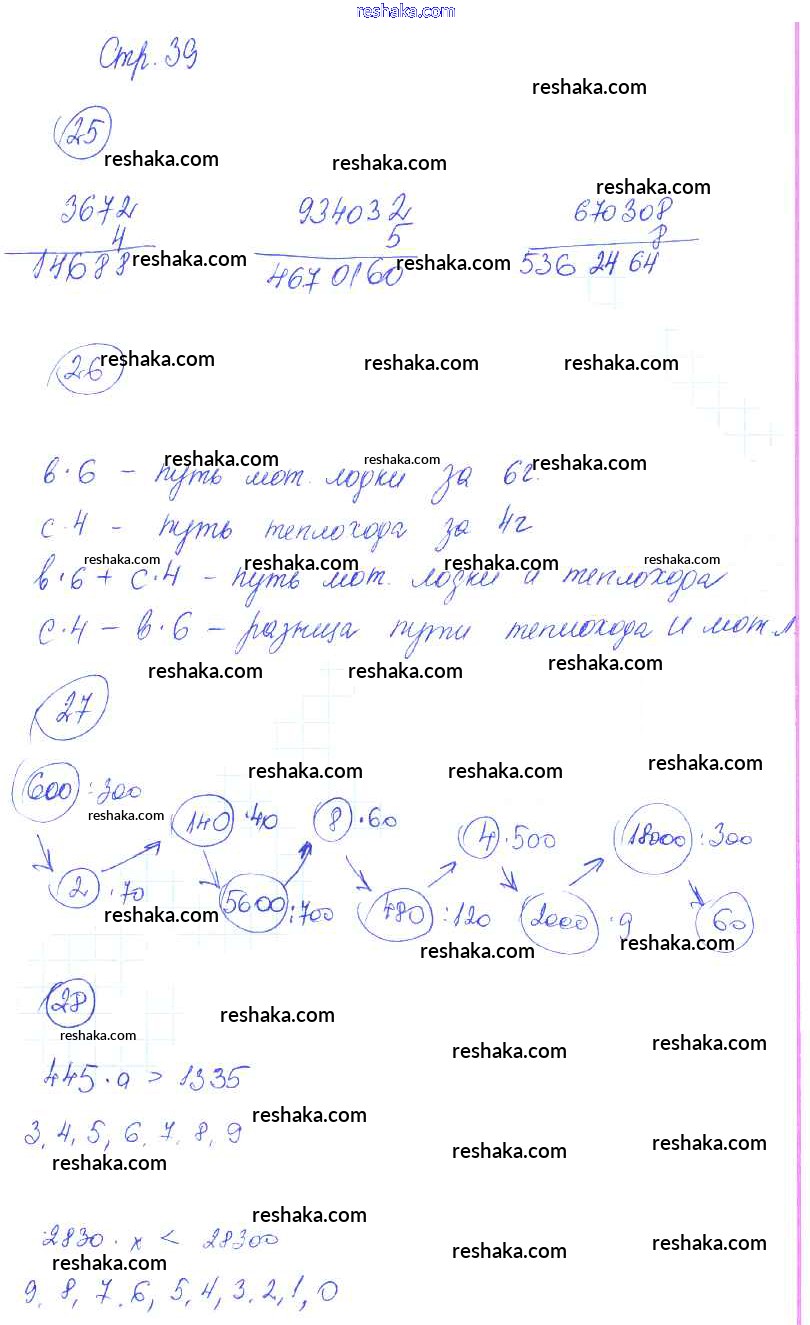 reshaka.com
Стр. 39
reshaka.com
25
reshaka.com reshaka.com
reshaka.com
3672 934032 670308
4 5 8
14688 reshaka.com 4670160 reshaka.com 5362464
26 reshaka.com reshaka.com reshaka.com
reshaka.com reshaka.com reshaka.com
в·6 - путь мот. лодки за 6г.
с·4 - путь теплохода за 4г
reshaka.com reshaka.com reshaka.com reshaka.com
в·6 + с·4 - путь мот. лодки и теплохода
с·4 - в·6 - разница пути теплохода и мот.л.
reshaka.com reshaka.com reshaka.com
27
reshaka.com reshaka.com reshaka.com
600 :300 140 ·40 8 ·60 4 ·500 18000 :300
reshaka.com
2 ·70 5600 :700 480 :120 2000 ·9 60
reshaka.com reshaka.com reshaka.com
28
reshaka.com reshaka.com reshaka.com reshaka.com
445·a > 1335
reshaka.com
3, 4, 5, 6, 7, 8, 9
reshaka.com reshaka.com reshaka.com
reshaka.com
2830 · x < 28300
reshaka.com reshaka.com reshaka.com
9, 8, 7, 6, 5, 4, 3, 2, 1, 0